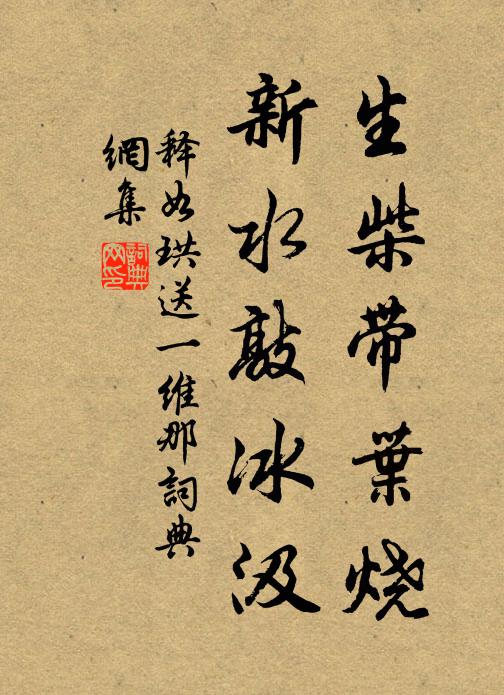 生柴带葉烧
新水敲冰汲
释如珙送一维那詞典
網集
詞典
网印